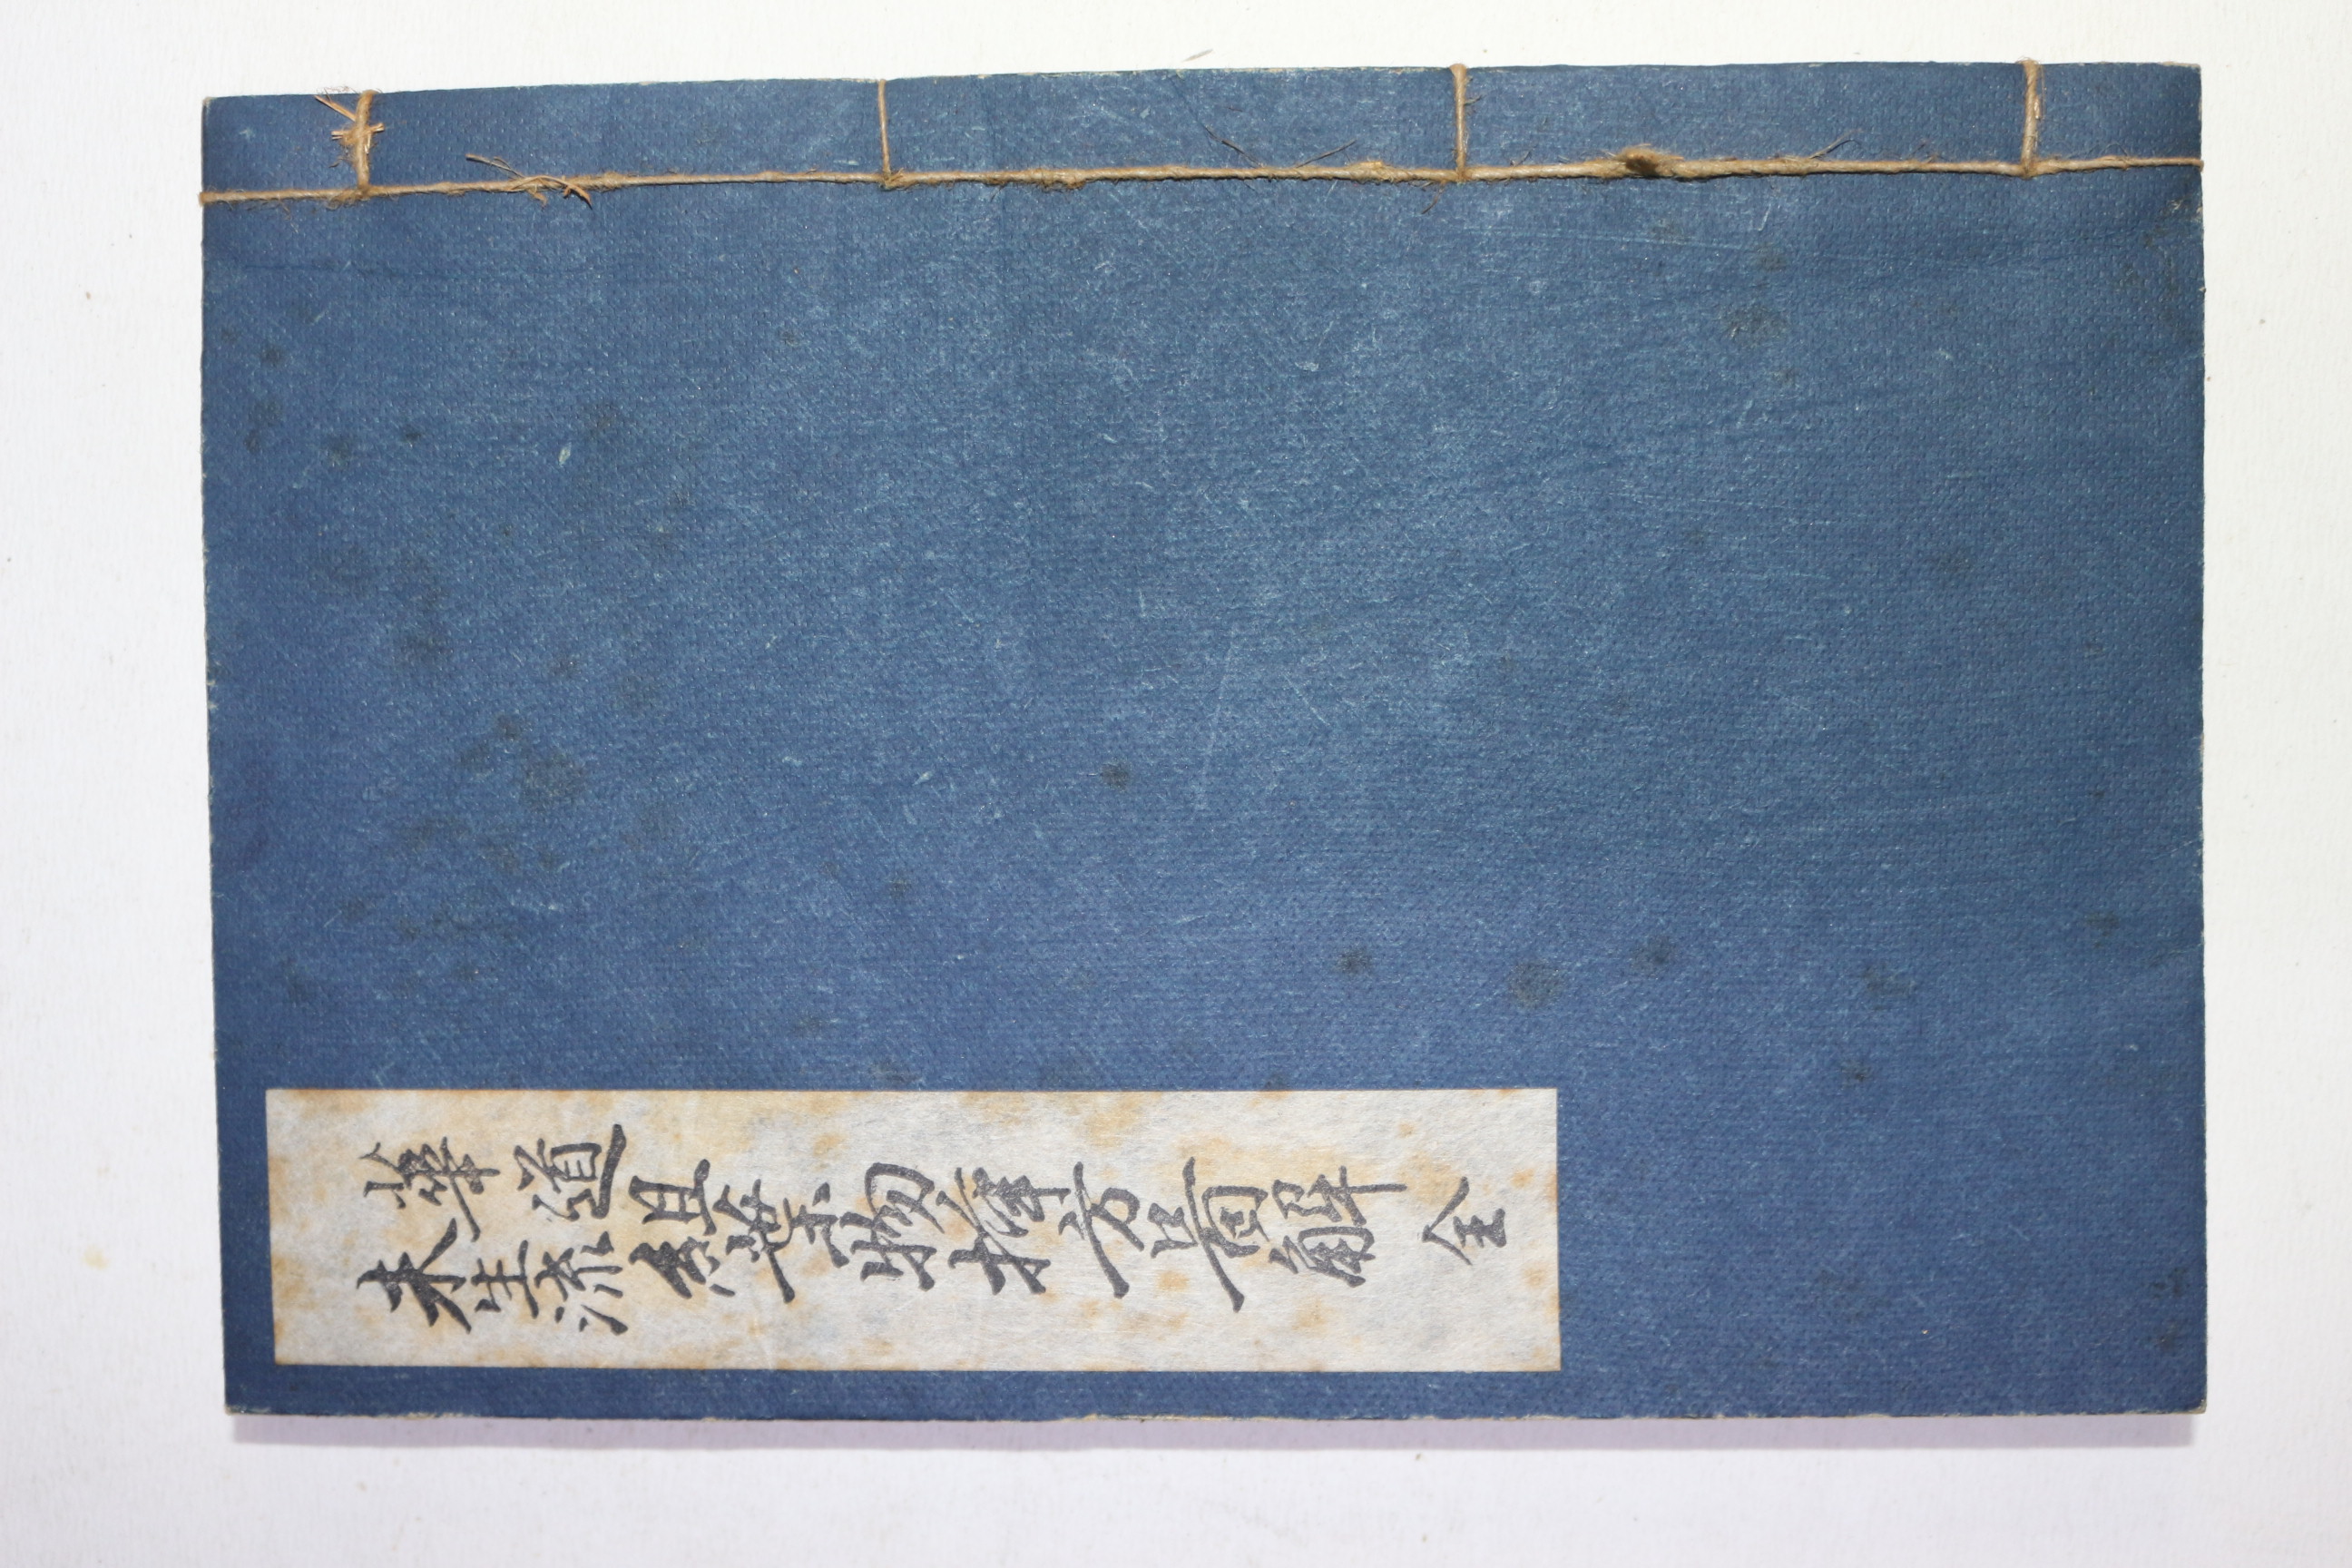 華道
未生流
組葉物挿方圖解 全